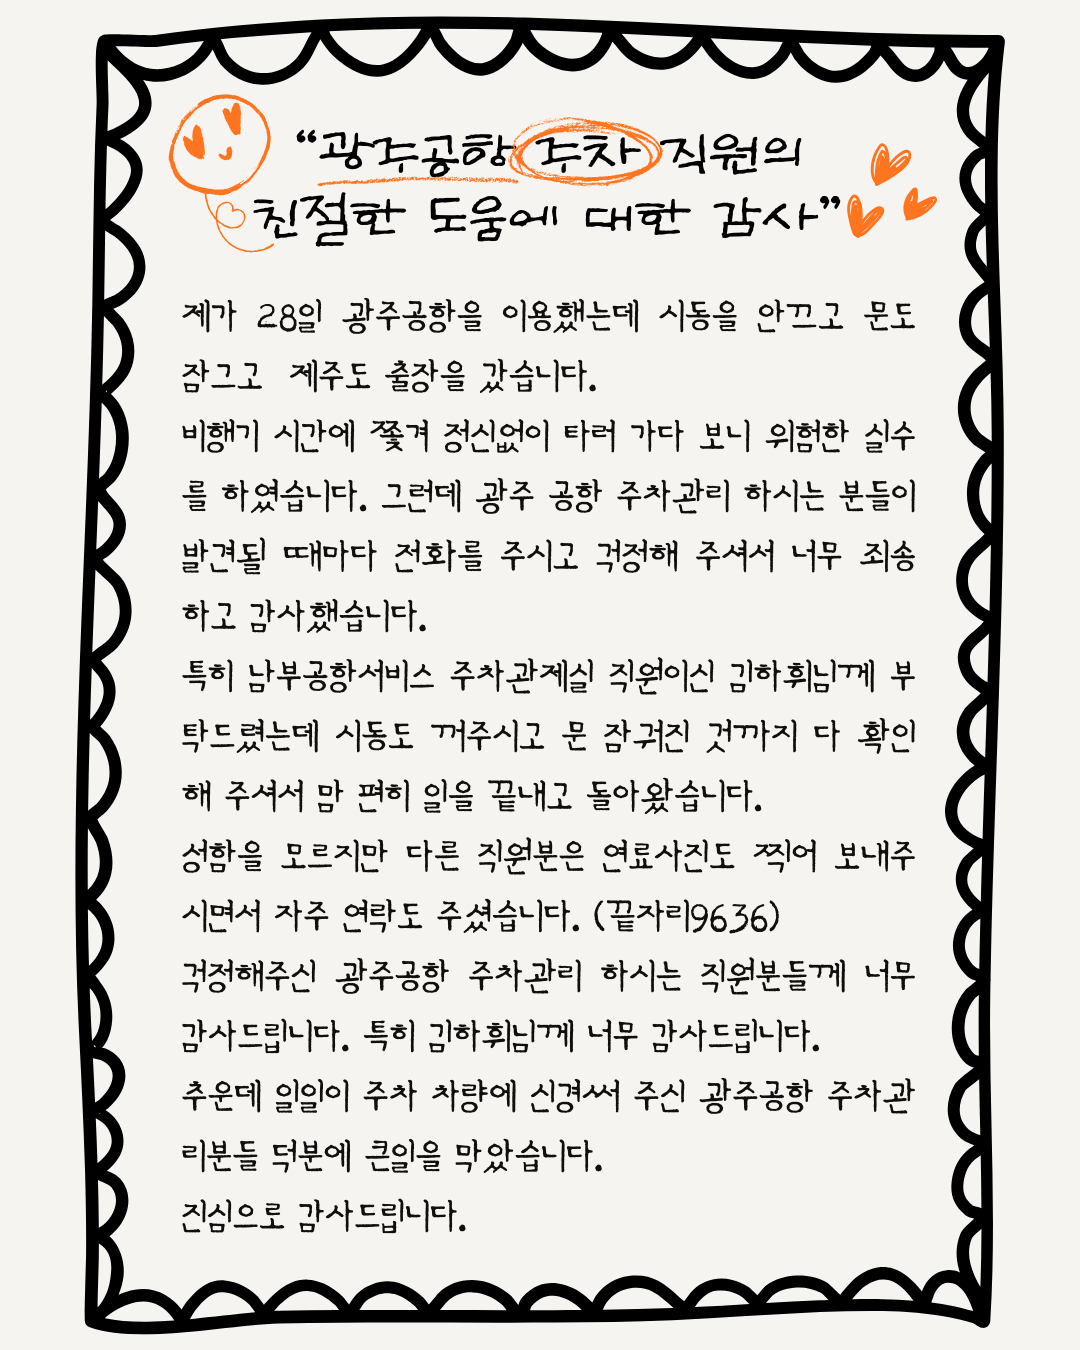 “광주공항 주차 직원의
친절한 도움에 대한 감사”
제가 28일 광주공항을 이용했는데 시동을 안끄고 문도
잠그고 제주도 출장을 갔습니다.
비행기 시간에 쫓겨 정신없이 타러 가다 보니 위험한 실수
를 하였습니다. 그런데 광주 공항 주차관리 하시는 분들이
발견될 때마다 전화를 주시고 걱정해 주셔서 너무 죄송
하고 감사했습니다.
특히 남부공항서비스 주차관제실 직원이신 김하휘님께 부
탁드렸는데 시동도 꺼주시고 문 잠궈진 것까지 다 확인
해 주셔서 맘 편히 일을 끝내고 돌아왔습니다.
성함을 모르지만 다른 직원분은 연료사진도 찍어 보내주
시면서 자주 연락도 주셨습니다. (끝자리9636)
걱정해주신 광주공항 주차관리 하시는 직원분들께 너무
감사드립니다. 특히 김하휘님께 너무 감사드립니다.
추운데 일일이 주차 차량에 신경써 주신 광주공항 주차관
리분들 덕분에 큰일을 막았습니다.
진심으로 감사드립니다.